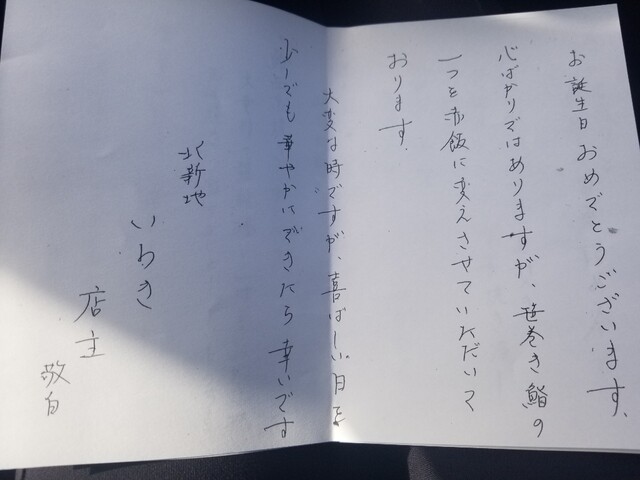 お誕生日おめでとうございます。
心ばかりではありますが、笹巻き鮨の
一つを赤飯に変えさせていただいて
おります。
大変な時ですが、喜ばしい日を
少しでも華やかにできたら幸いです
北新地
いわき
店主
敬白